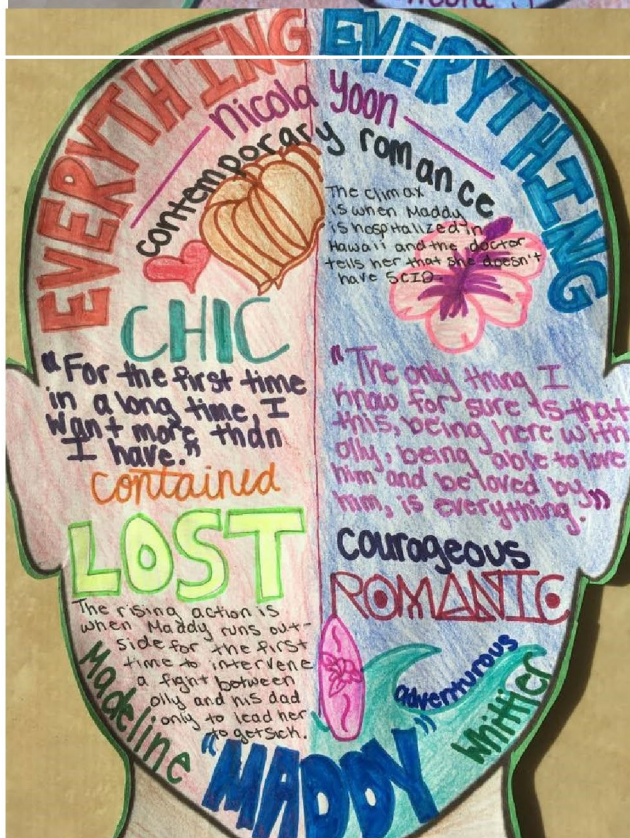 EVERYTHING EVERYTHING
Nicola Yoon
contemporary romance
The climax
is when Maddy
is hospitalized in
Hawaii and the doctor
tells her that she doesn't
have SCID.
CHIC
"For the first time
in a long time, I
want more than
I have."
contained
LOST
The rising action is
when Maddy runs out-
side for the first
time to intervene
a fight between
olly and his dad
only to lead her
to get sick.
"The only thing I
know for sure is that
this, being here with
olly, being able to love
him and be loved by
him, is everything."
courageous
ROMANTIC
adventurous
Madeline
"MADDY"
Whittier